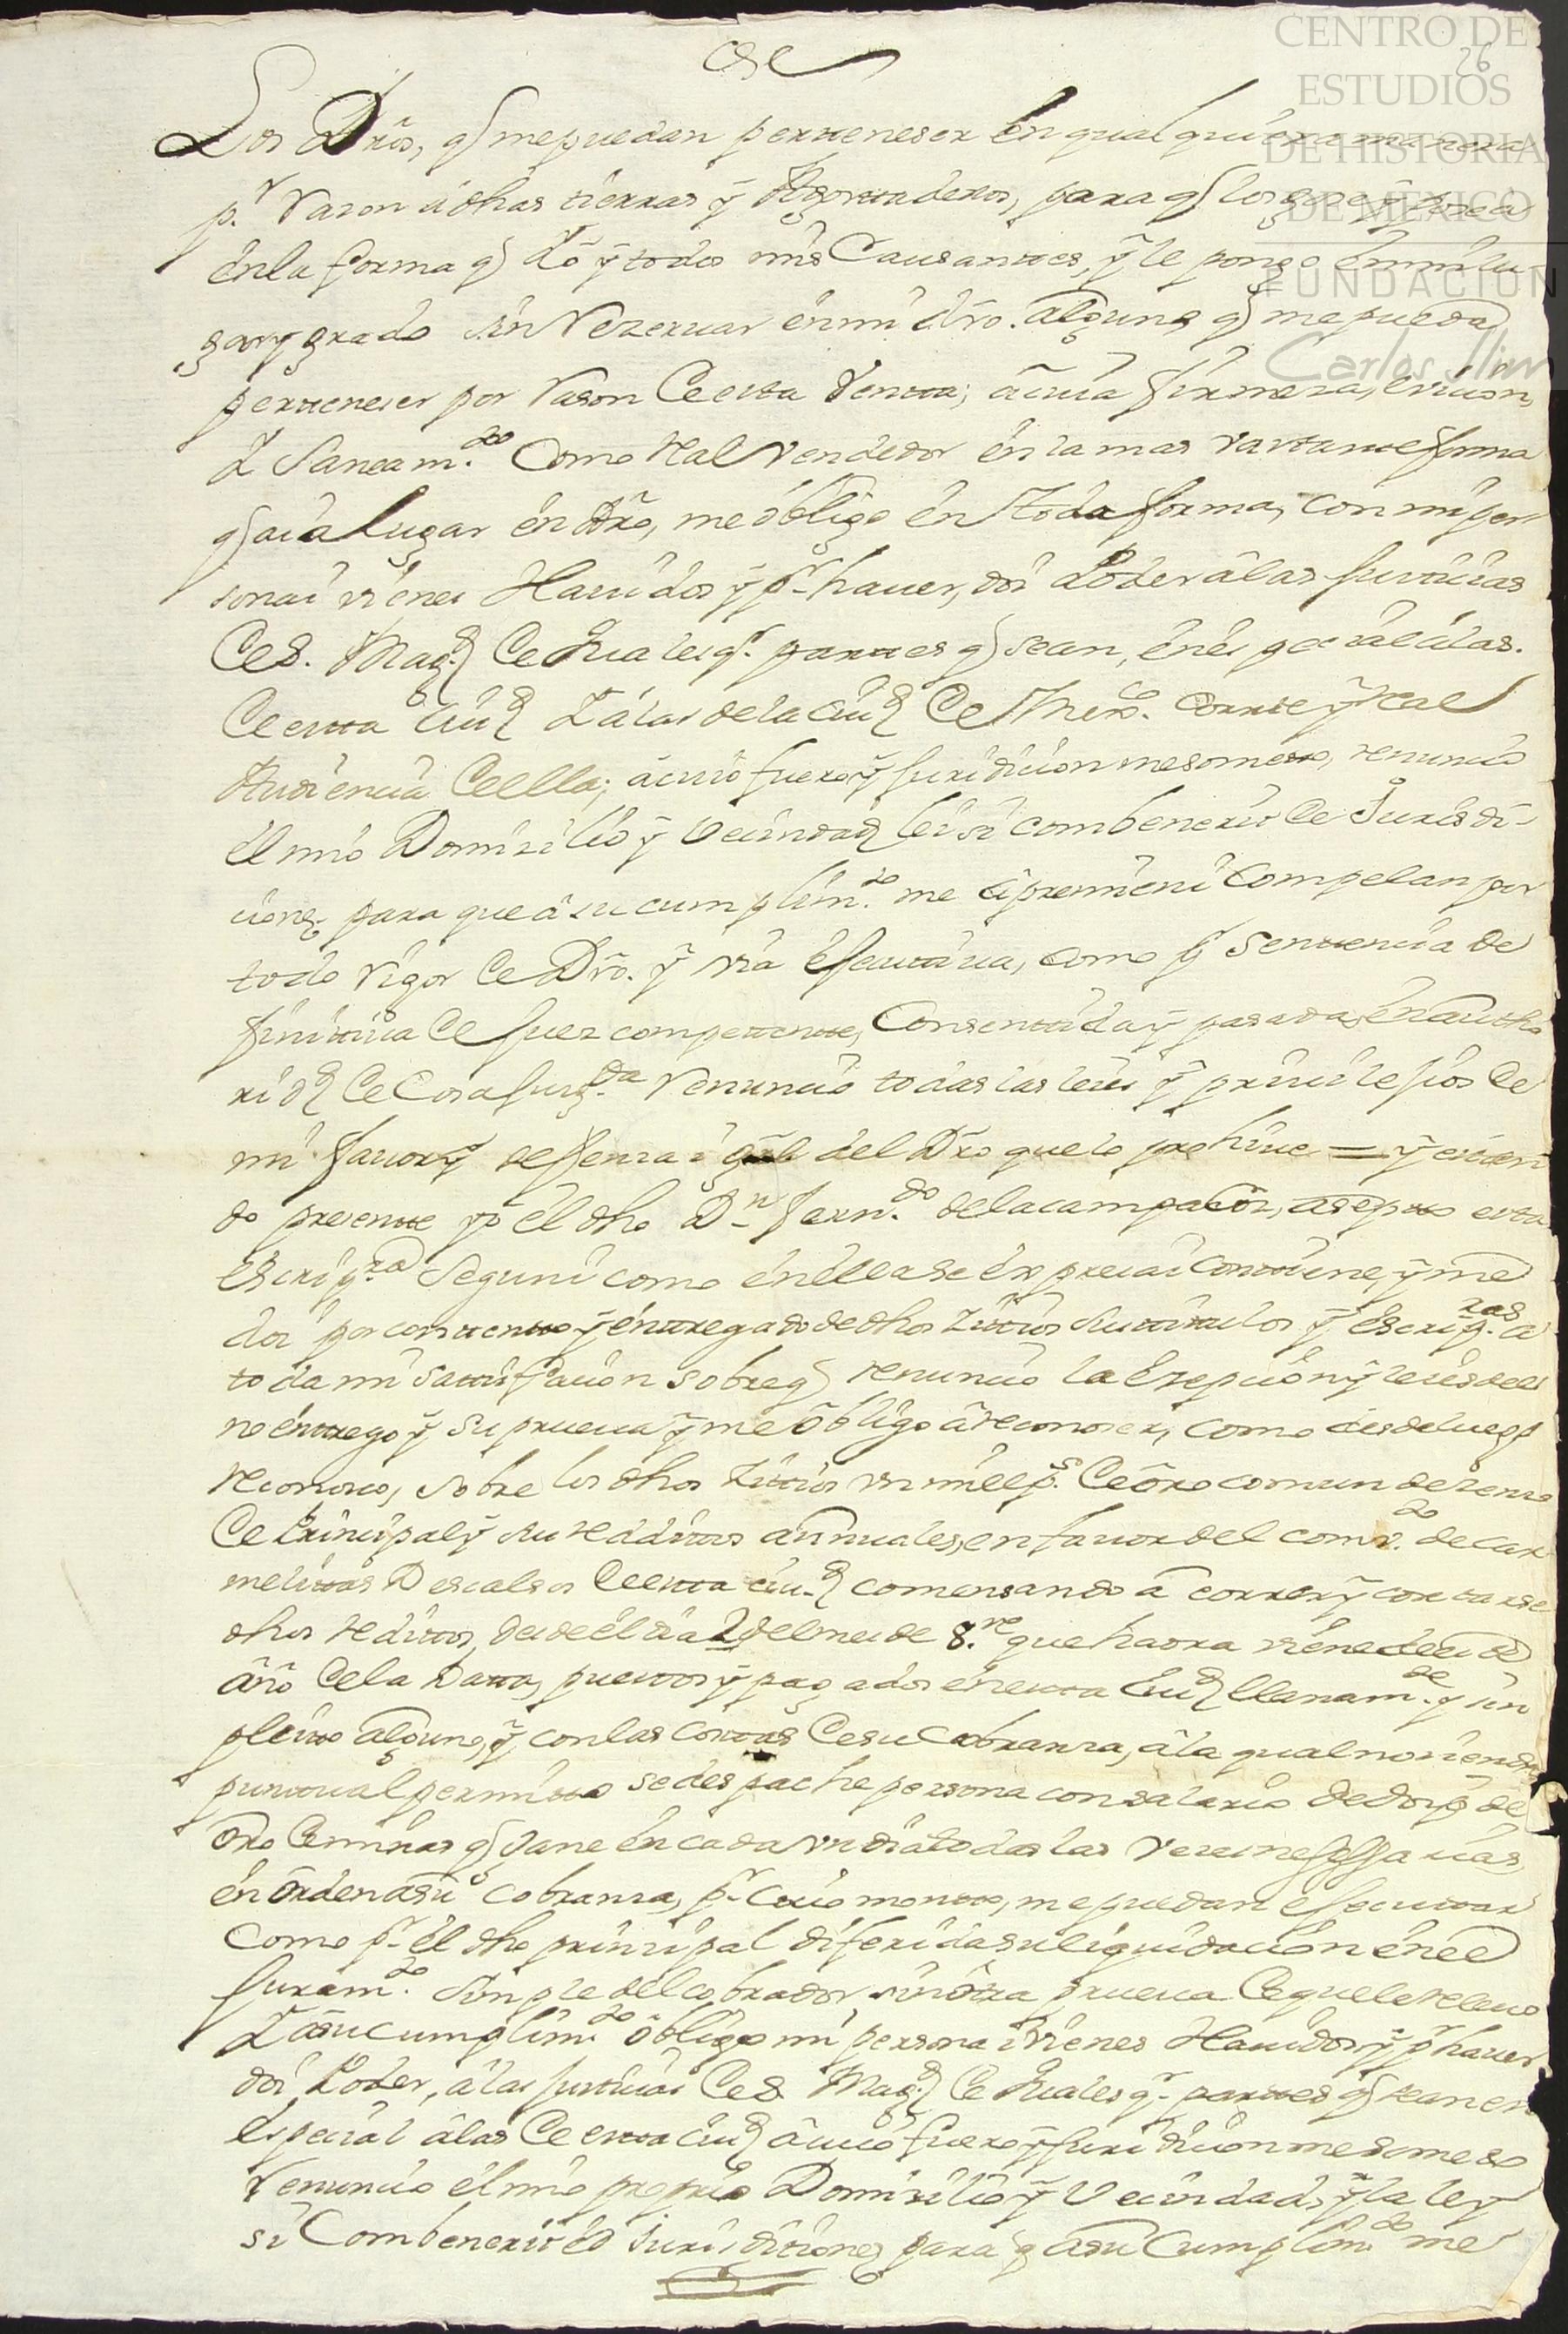 CENTRO DE
ESTUDIOS
DE HISTORIA
DE MÉXICO
FUNDACIÓN
Carlos Slim
26
Los Dr̃os, q̃ me puedan pertteneser en qual quiera manera
p.r rason a dhas tierras y Agostaderos, para q̃ los gose y posea
en la forma q̃ Yo y todos mis Causanttes, y le pongo en mi lu-
gar y grado sin rezervar en mi dr̃o. alguno q̃ me pueda
perttenecer por rason Ce esta ventta; a cuia firmeza, evicion,
Y Saneam.to Como Real vendedor en la mas vastantte forma
q̃ aia lugar en dr̃o, me obligo en toda forma, con mi per-
sona i vienes Havidos y p.r haver, doi Poder a las Justicias
Ce S. Mag.d Ce quales q.r parttes q̃ sean, en especial a las
Ce estta Ciu.d Y a las de la Ciu.d Ce Mex.co Cortte y Real
Audiencia Ce ella; a cuio fuero y Juridicion me sometto, renuncio
el mio Domisilio y Vecindad lei si combenerit Ce Jurisdi-
cione, para que a su cumplim.to me apremien i Compelan por
todo rigor Ce Dr̃o. y via Executiva, como p.r Senttencia de
finitiva Ce Juez competentte, Consenttida y pasada en autho
rid.d Ce Cosa Jusg.da renuncio todas las leies y privilejios Ce
mi favor y defensa i gr̃al del Dr̃o que lo prohive = y estan
do presentte yo el dho D.n Fern.do de la campa Cos, asepto esta
Escrip.ra Segun i como en ella se expresa i conttiene, y me
doi por conttentto y enttregado de dhos Sittios sus ttitulos y escrip.ras a
toda mi sattisfacion sobre q̃ renuncio la Exepcion y leies del
no enttrego y su prueva y me obligo a reconoser, como desde luego
reconosco, sobre los dhos Sittios un mill p.s Ce oro comun de senso
Ce Principal y sus redditos annuales, en favor del comv.to de Car
melittas Descalsos Ce estta ciu.d comensando a correr y contarse
dhos redittos, desde el dia 2 del mes de 8.re que haora viene de este
año Ce la Datta, puestos y pagados en estta Ciu.d llanam.te y sin
pleito alguno, y con las Costtas Ce su Cobransa, a la qual no siendo
punttual permitto se despache persona con salario de dos p.s de
oro Ce minas q̃ gane en cada un dia todas las veces nesessarias
en orden a su cobransa, p.r Cuio montto, me puedan executtar
Como p.r el dho prinsipal diferida su liquidacion en el
Juram.to Simple del cobrador, sin otra prueva Ce que le relevo
Y a su cumplim.to obligo mi persona i vienes Havidos y p.r haver
doi Poder, a las Justicias Ce S. Mag.d Ce quales q.r parttes q̃ sean en
especial a las Ce estta ciu.d a cuio fuero y Juridicion me sometto
renuncio el mio proprio Domisilio y Vecindad, y la ley
si Combenerit de Jurisditione, para q̃ a su Cumplim.to me